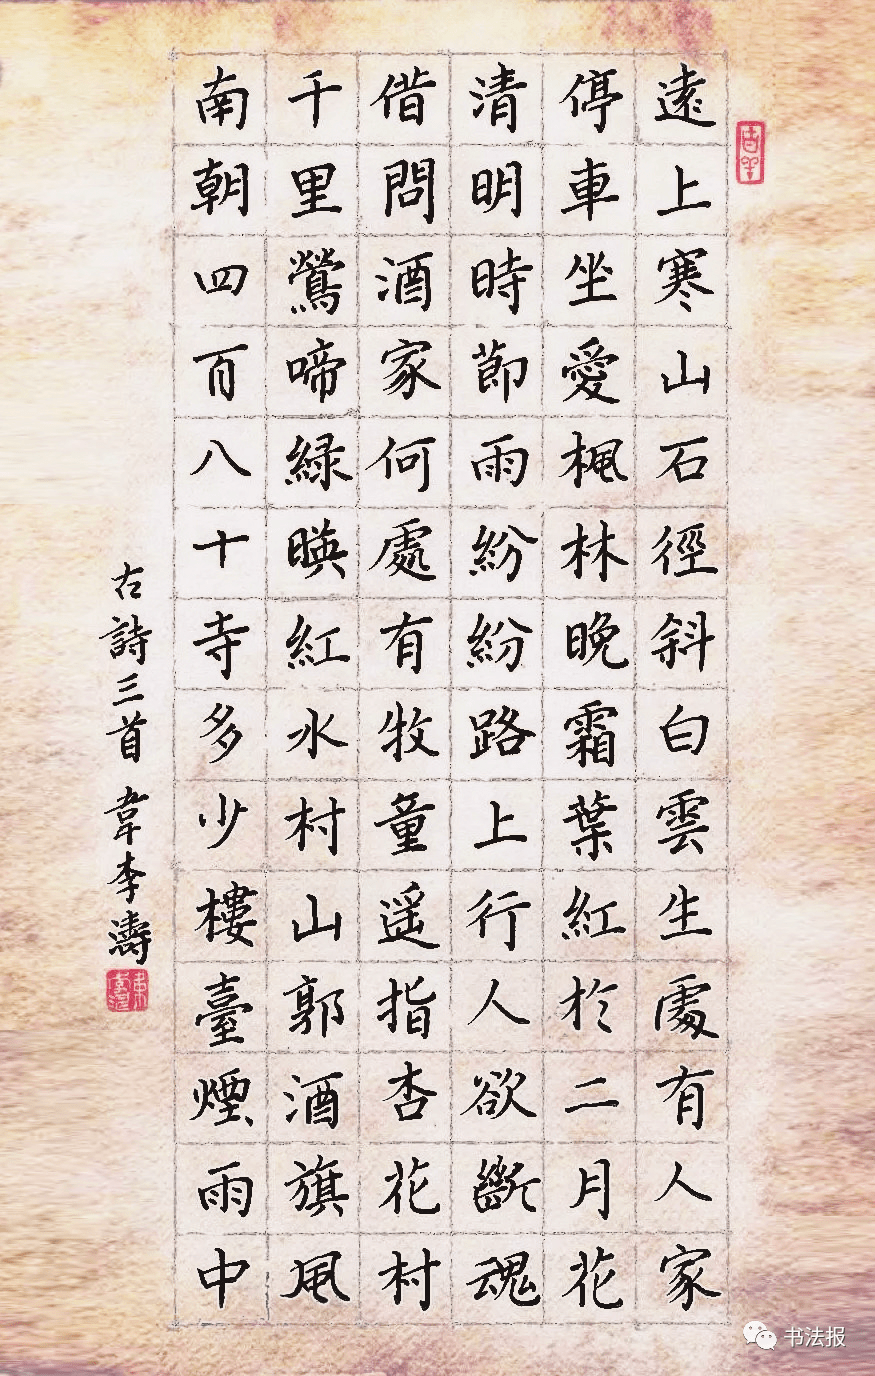 遠上寒山石徑斜白雲生處有人家
停車坐愛楓林晚霜葉紅於二月花
清明時節雨紛紛路上行人欲斷魂
借問酒家何處有牧童遥指杏花村
千里鶯啼緑暎紅水村山郭酒旗風
南朝四百八十寺多少樓臺煙雨中
古詩三首 韋李濤
书法报